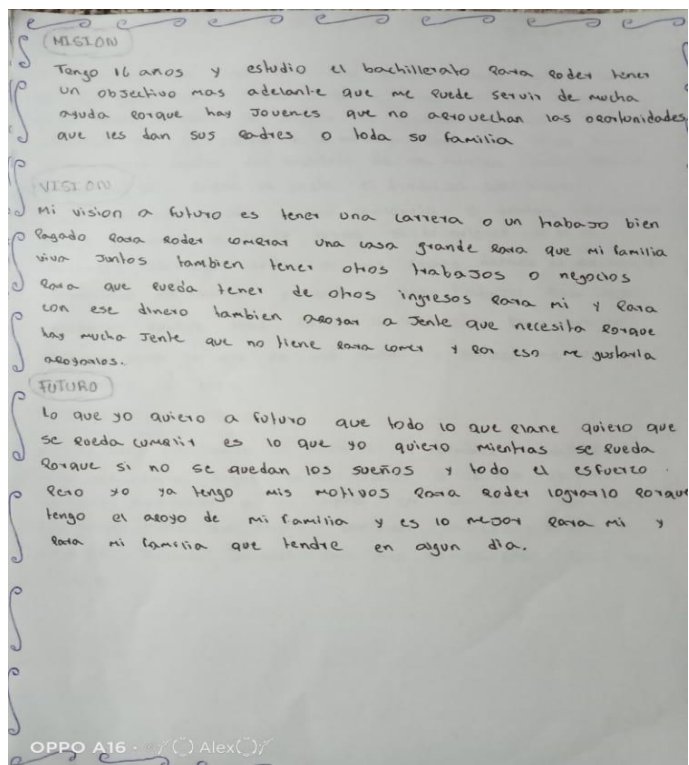 MISION
Tengo 16 anos y estudio el bachillerato para poder tener
un objectivo mas adelante que me puede servir de mucha
ayuda porque hay Jovenes que no aprovechan las oportunidades
que les dan sus padres o toda su familia
VISION
Mi vision a futuro es tener una carrera o un trabajo bien
pagado para poder comprar una casa grande para que mi familia
viva Juntos tambien tener otros trabajos o negocios
para que pueda tener de otros ingresos para mi y para
con ese dinero tambien apoyar a Jente que necesita porque
hay mucha Jente que no tiene para comer y por eso me gustaria
apoyarlos.
FUTURO
Lo que yo quiero a futuro que todo lo que plane quiero que
se pueda cumplir es lo que yo quiero mientras se pueda
porque si no se quedan los sueños y todo el esfuerzo.
Pero yo ya tengo mis motivos para poder lograrlo porque
tengo el apoyo de mi familia y es lo mejor para mi y
para mi familia que tendre en algun dia.
OPPO A16 · Alex